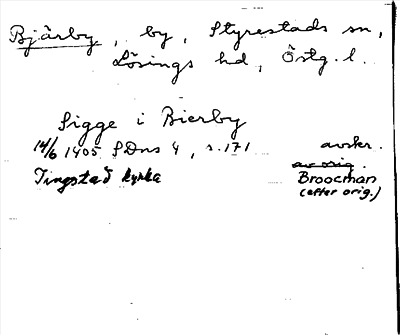 Bjärby, by, Styrestads sn,
Lösings hd, Östg. l.
Sigge i Bierby
14/6 1405 SDns 4, s. 171 avskr.
av orig.
Tingstad kyrka Broocman
(efter orig.)